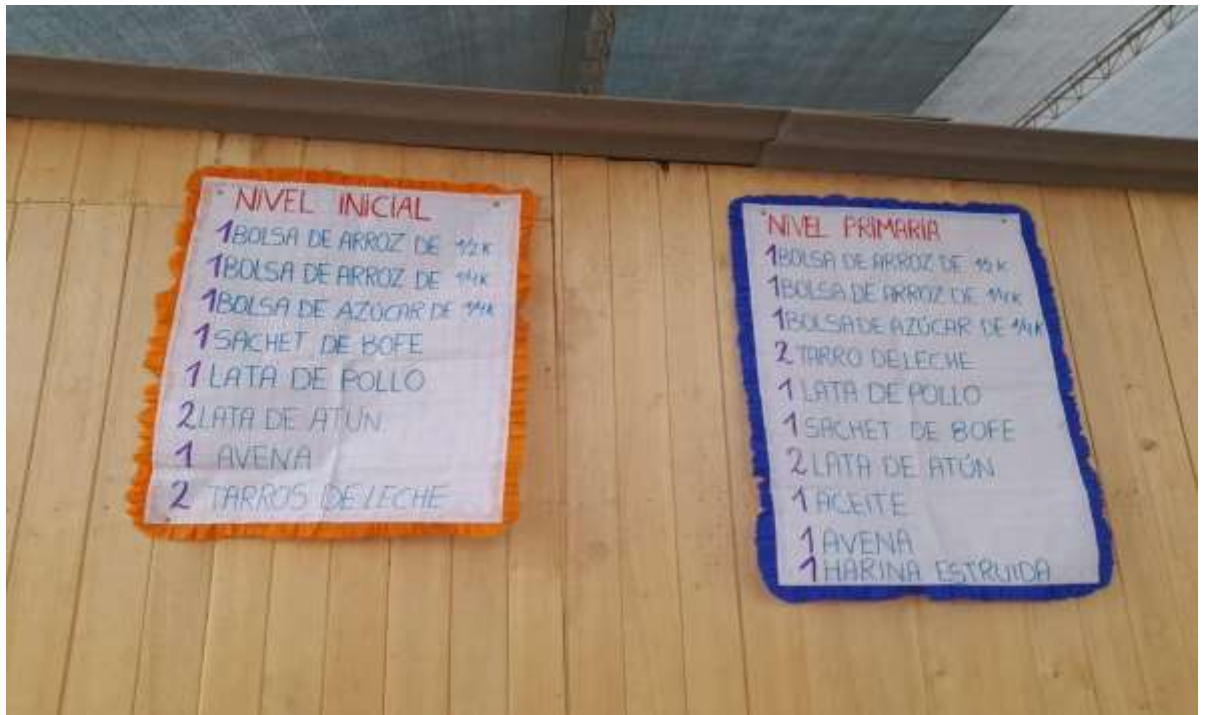 NIVEL INICIAL
1 BOLSA DE ARROZ DE 1/2K
1 BOLSA DE ARROZ DE 1/4K
1 BOLSA DE AZÚCAR DE 1/4K
1 SACHET DE BOFE
1 LATA DE POLLO
2 LATA DE ATÚN
1 AVENA
2 TARROS DE LECHE
NIVEL PRIMARIA
1 BOLSA DE ARROZ DE 1/2K
1 BOLSA DE ARROZ DE 1/4K
1 BOLSA DE AZÚCAR DE 1/4K
2 TARRO DE LECHE
1 LATA DE POLLO
1 SACHET DE BOFE
2 LATA DE ATÚN
1 ACEITE
1 AVENA
1 HARINA ESTRUIDA